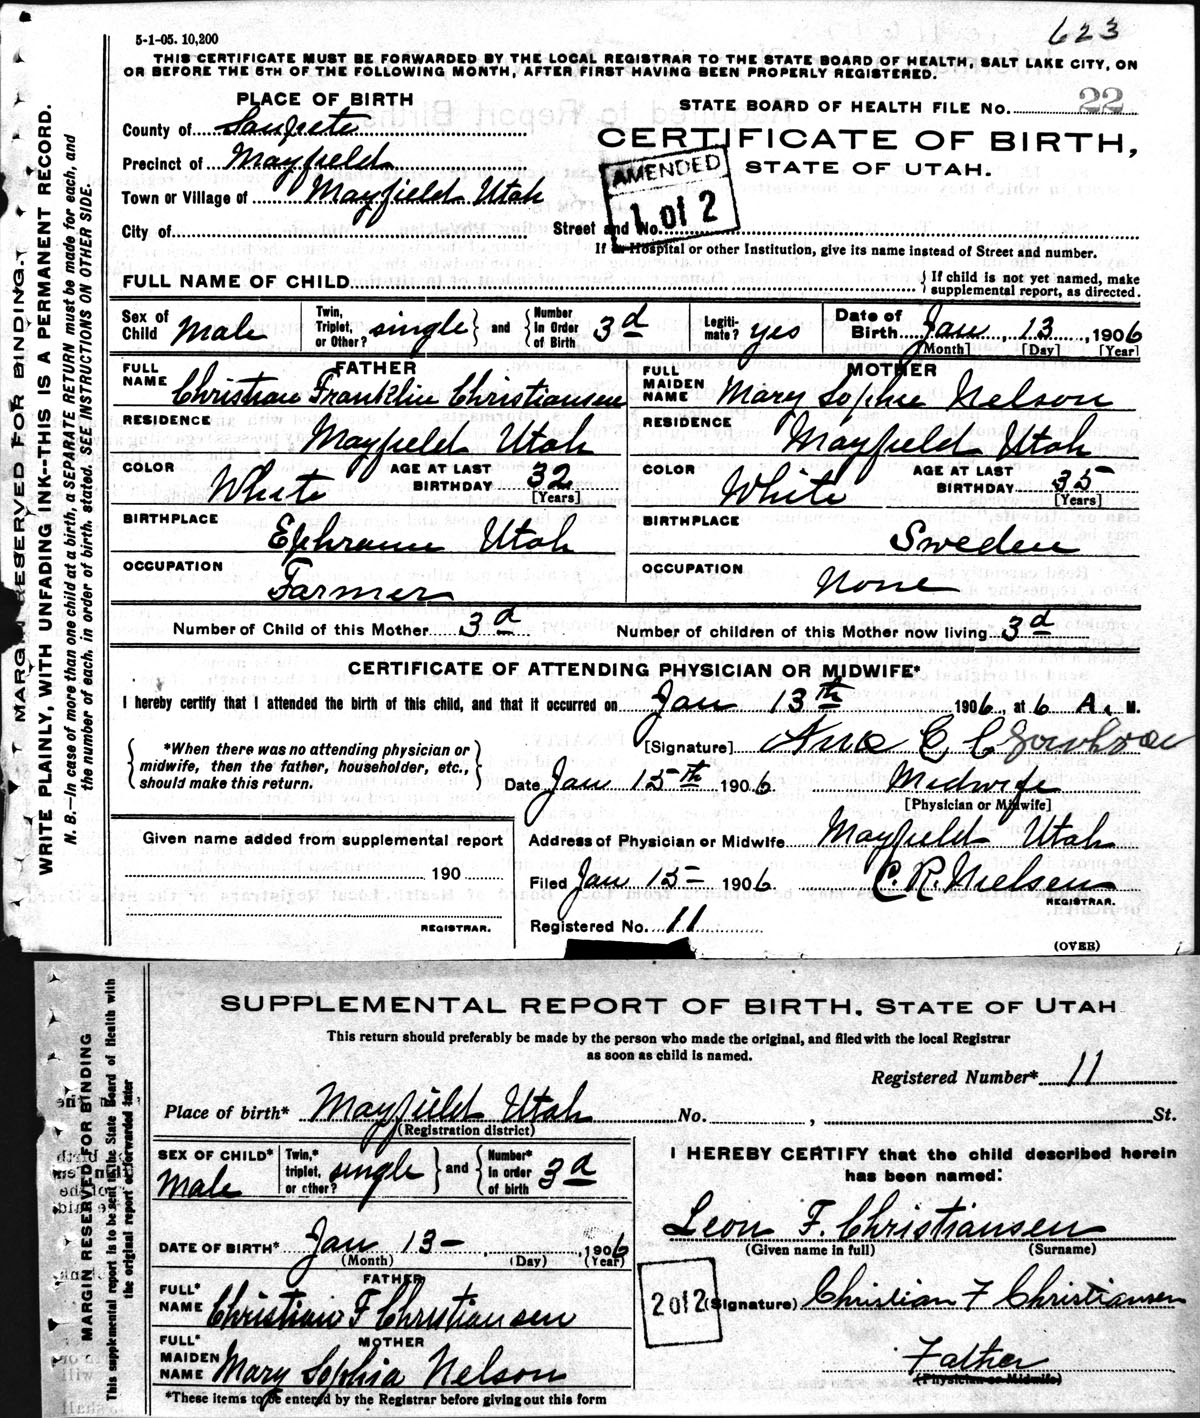 623
5-1-05. 10,200
THIS CERTIFICATE MUST BE FORWARDED BY THE LOCAL REGISTRAR TO THE STATE BOARD OF HEALTH, SALT LAKE CITY, ON
OR BEFORE THE 5TH OF THE FOLLOWING MONTH, AFTER FIRST HAVING BEEN PROPERLY REGISTERED.
PLACE OF BIRTH
STATE BOARD OF HEALTH FILE No. 22
County of Sanpete
CERTIFICATE OF BIRTH,
Precinct of Mayfield
STATE OF UTAH.
AMENDED
1 of 2
Town or Village of Mayfield Utah
City of
Street and No.
If in Hospital or other Institution, give its name instead of Street and number.
FULL NAME OF CHILD
{ If child is not yet named, make
supplemental report, as directed.
Sex of Child Male
Twin, Triplet, or Other? single } and { Number In Order of Birth 3d
Legiti-mate? yes
Date of Birth Jan 13, 1906
[Month] [Day] [Year]
FATHER
FULL NAME Christian Franklin Christiansen
MOTHER
FULL MAIDEN NAME Mary Sophie Nelson
RESIDENCE Mayfield Utah
RESIDENCE Mayfield Utah
COLOR White AGE AT LAST BIRTHDAY 32 [Years]
COLOR White AGE AT LAST BIRTHDAY 35 [Years]
BIRTHPLACE Ephraim Utah
BIRTHPLACE Sweden
OCCUPATION Farmer
OCCUPATION None
Number of Child of this Mother 3d Number of children of this Mother now living 3d
CERTIFICATE OF ATTENDING PHYSICIAN OR MIDWIFE*
I hereby certify that I attended the birth of this child, and that it occurred on Jan 13th 1906, at 6 A. M.
{ *When there was no attending physician or
midwife, then the father, householder, etc.,
should make this return. }
[Signature] C C
Date Jan 15th 1906. Midwife
[Physician or Midwife]
Given name added from supplemental report
190
REGISTRAR.
Address of Physician or Midwife Mayfield Utah
Filed Jan 15- 1906. C. R. Nielsen
REGISTRAR.
Registered No. 11
(OVER)
MARGIN RESERVED FOR BINDING.
WRITE PLAINLY, WITH UNFADING INK--THIS IS A PERMANENT RECORD.
N. B.—In case of more than one child at a birth, a SEPARATE RETURN must be made for each, and
the number of each, in order of birth, stated. SEE INSTRUCTIONS ON OTHER SIDE.
SUPPLEMENTAL REPORT OF BIRTH, STATE OF UTAH
This return should preferably be made by the person who made the original, and filed with the local Registrar
as soon as child is named.
Registered Number* 11
Place of birth* Mayfield Utah No. , St.
(Registration district)
SEX OF CHILD* Male
Twin,* triplet, or other? single } and { Number* In order of birth 3d
DATE OF BIRTH* Jan 13- , 1906
(Month) (Day) (Year)
FATHER
FULL* NAME Christian F Christiansen
MOTHER
FULL* MAIDEN NAME Mary Sophia Nelson
*These items to be entered by the Registrar before giving out this form
I HEREBY CERTIFY that the child described herein
has been named:
Leon F. Christiansen
(Given name in full) (Surname)
2 of 2
(Signature) Christian F Christiansen
Father
(Physician or Midwife)
MARGIN RESERVED FOR BINDING
This supplemental report is to be sent to the State Board of Health with
the original report or forwarded later